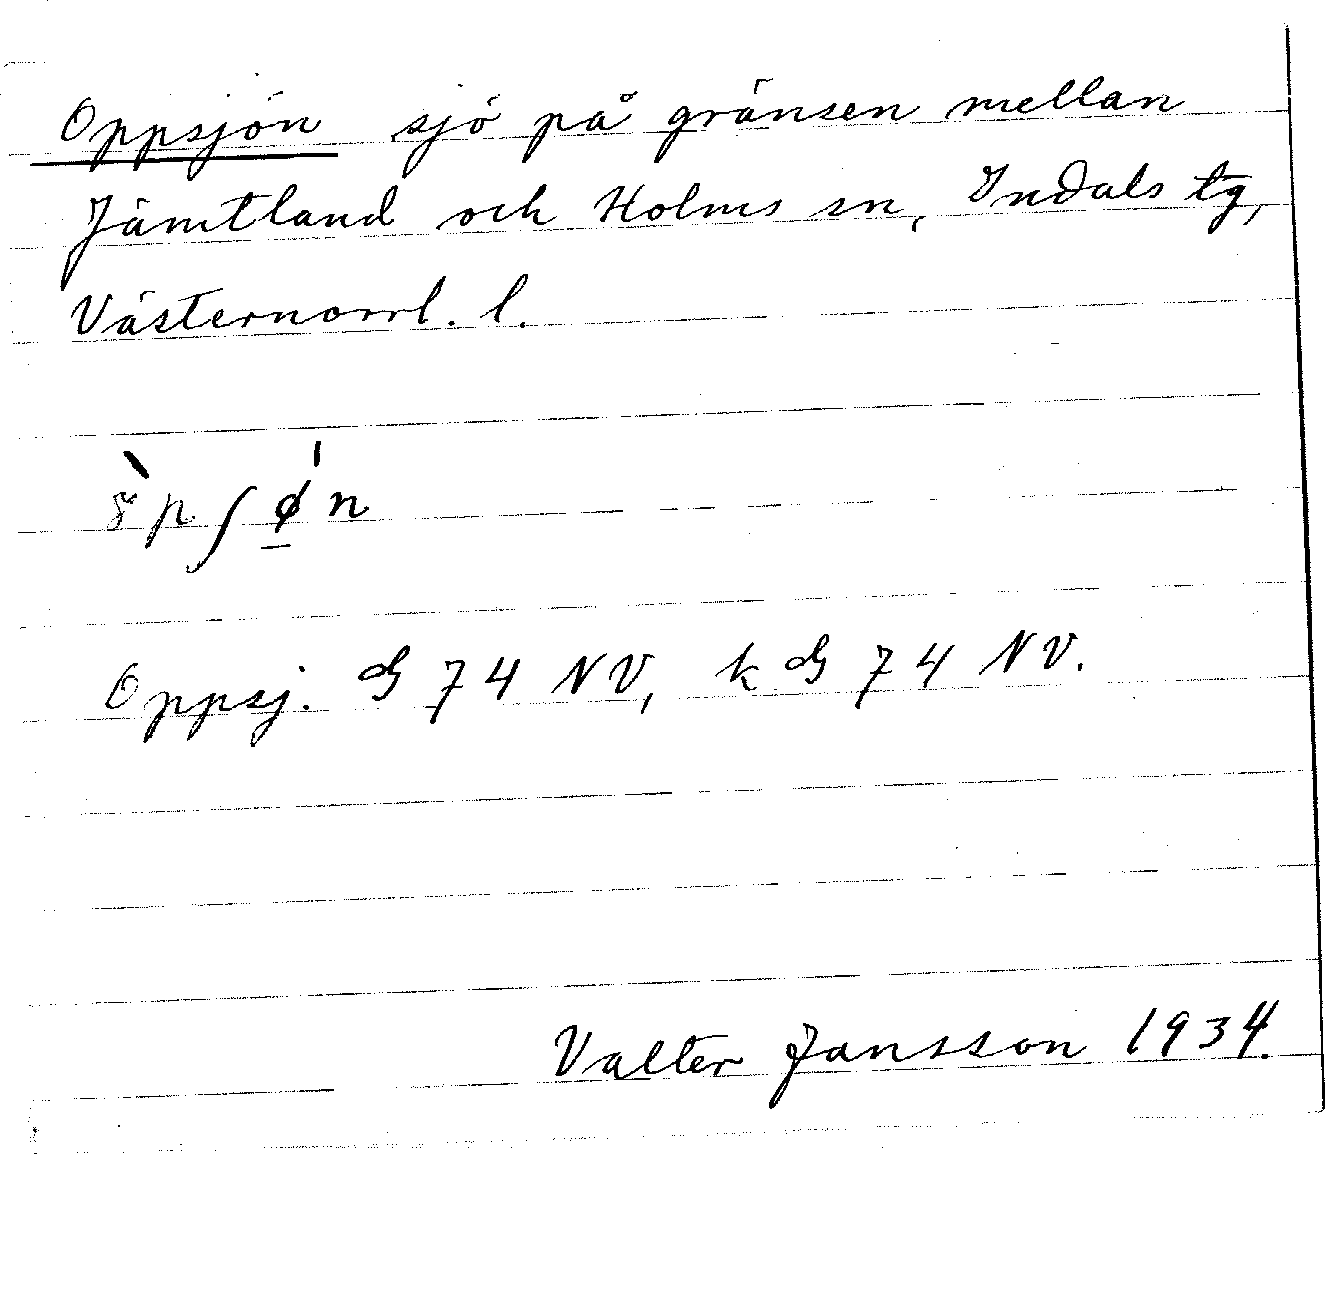 Oppsjön sjö på gränsen mellan
Jämtland och Holms sn, Indals tg,
Västernorrl. l.
Oppsj. G 74 NV, k G 74 NV.
Valter Jansson 1934.